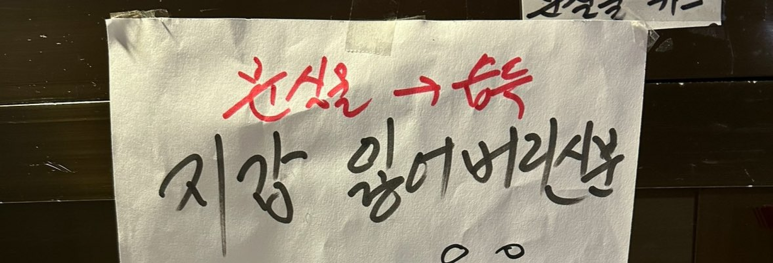 분실물 → 습득
지갑 잃어버리신분